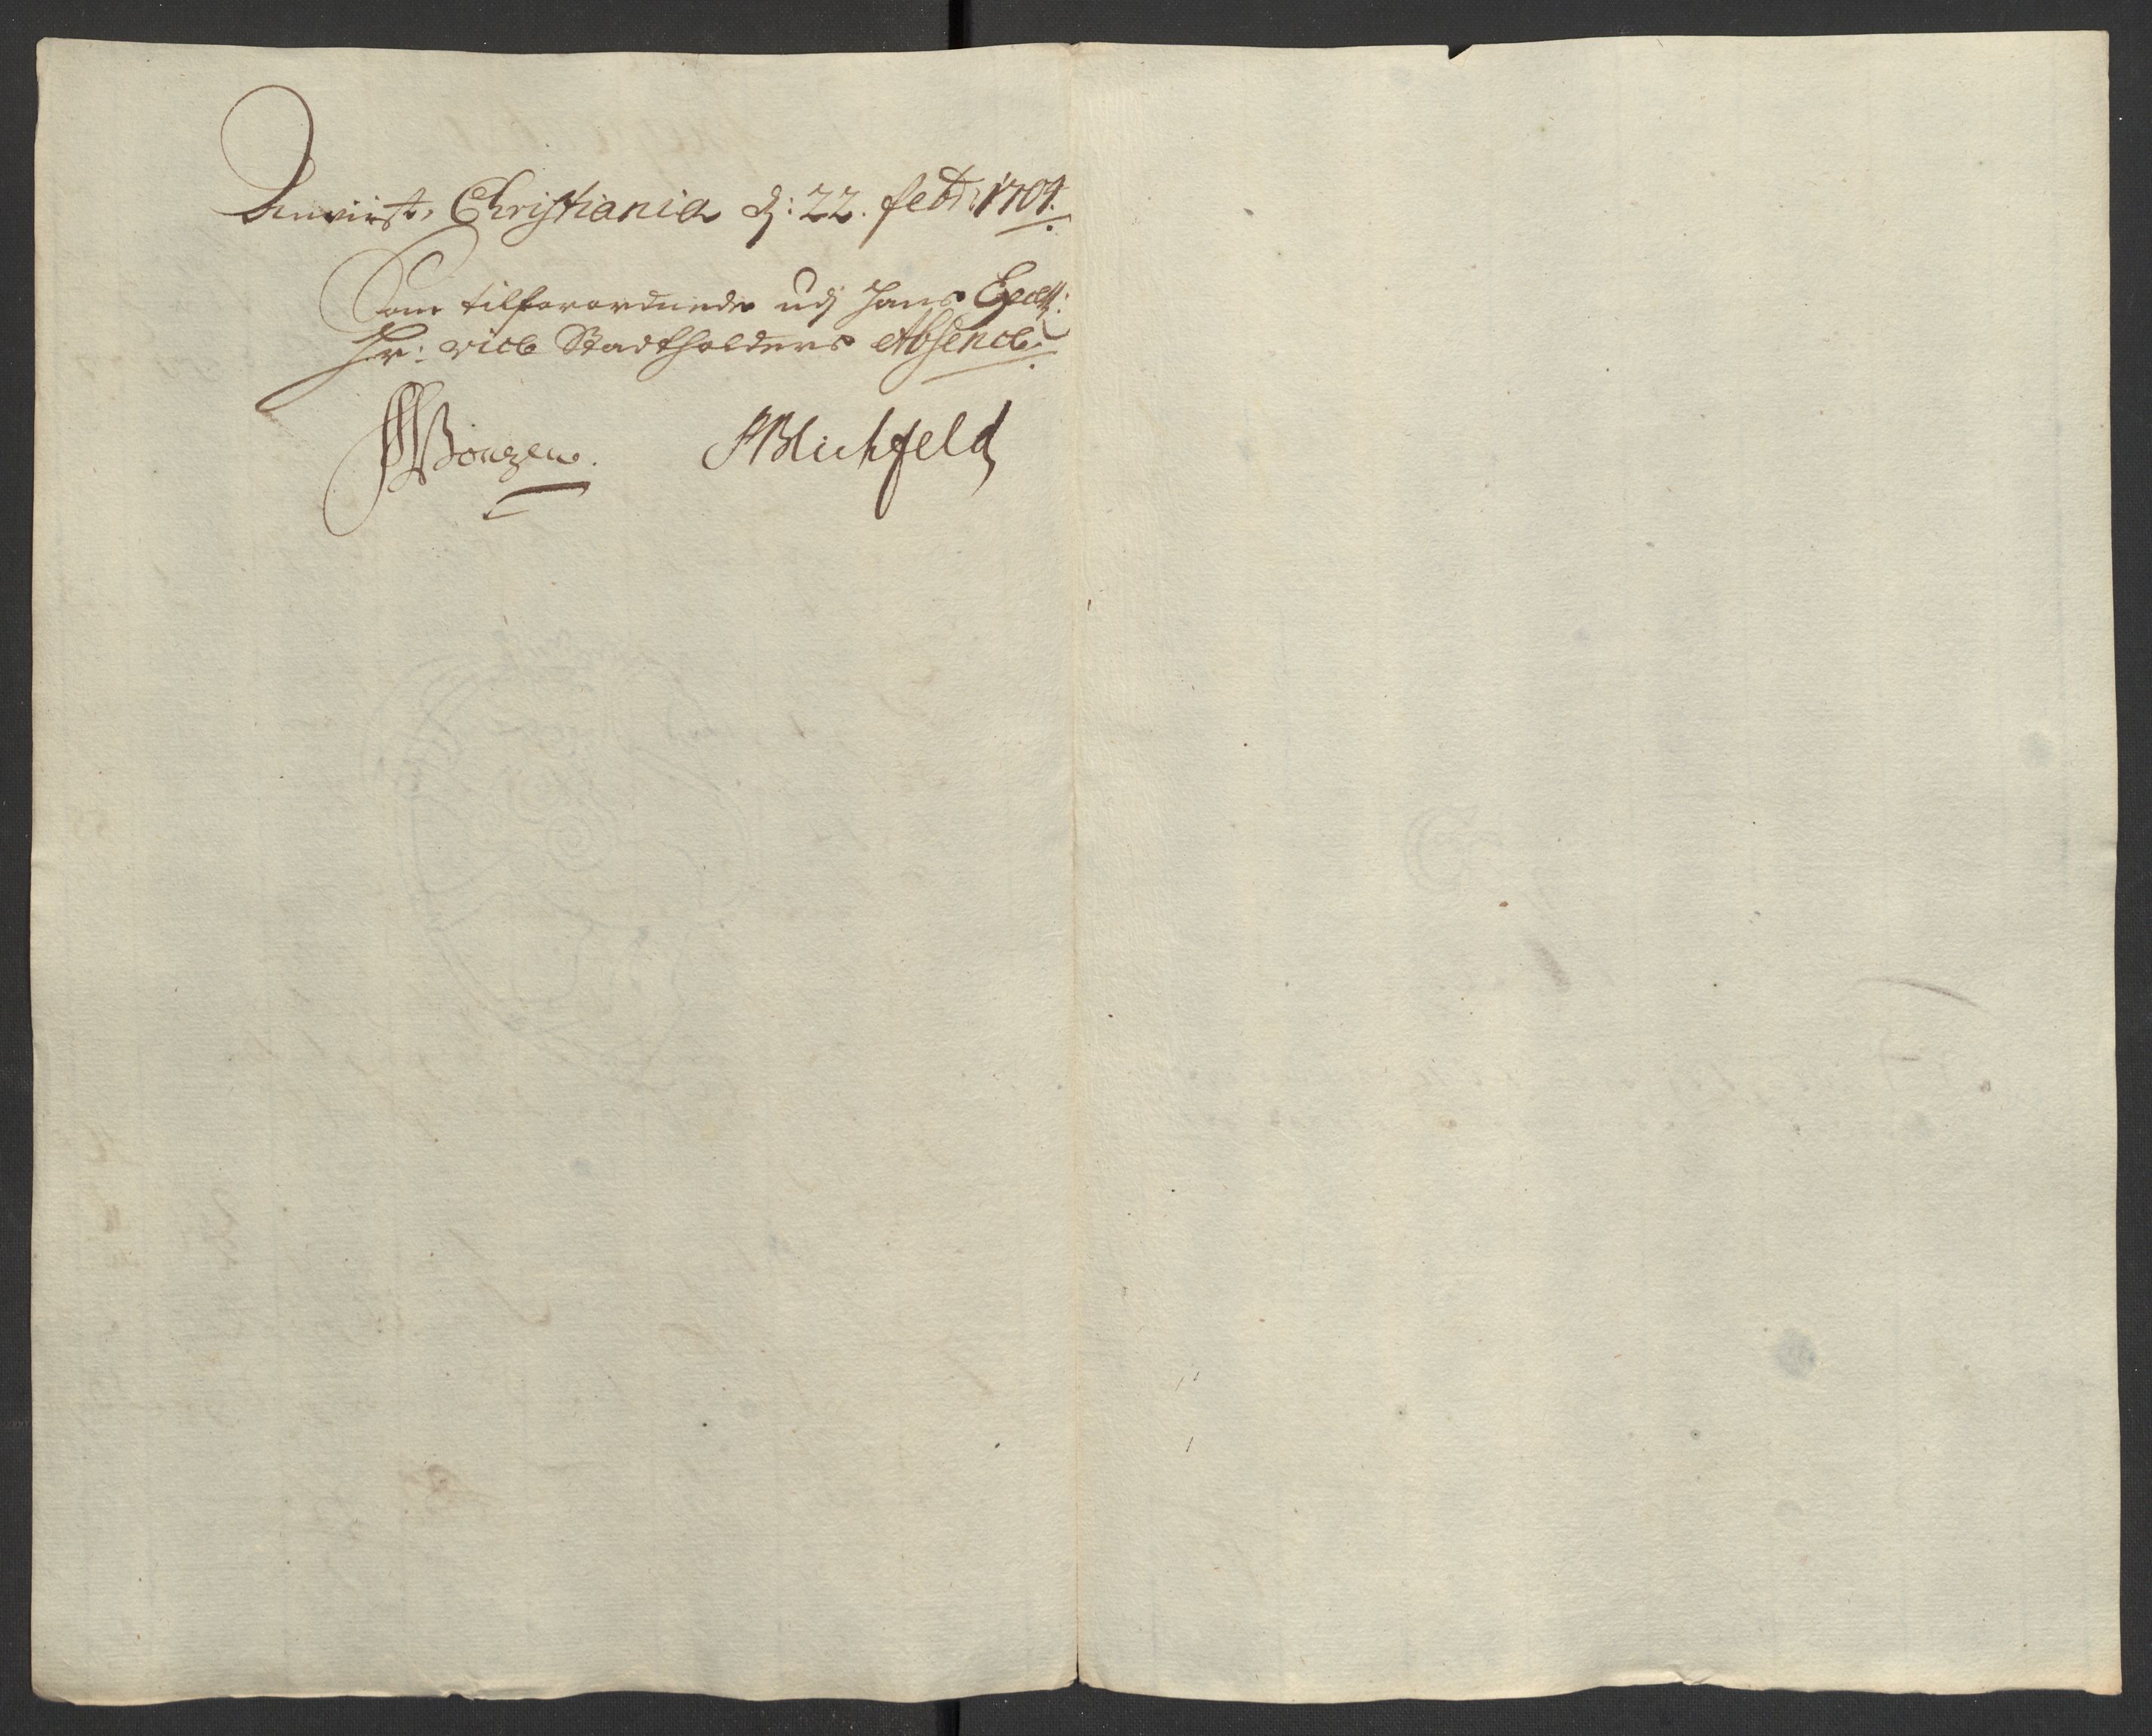 Anviist, Christiania d: 22. febr: 1704.
Som tilforordnede udj Hans Excell:
Hr: vice Stadtholders Absence.
Bonzen. Blichfeld